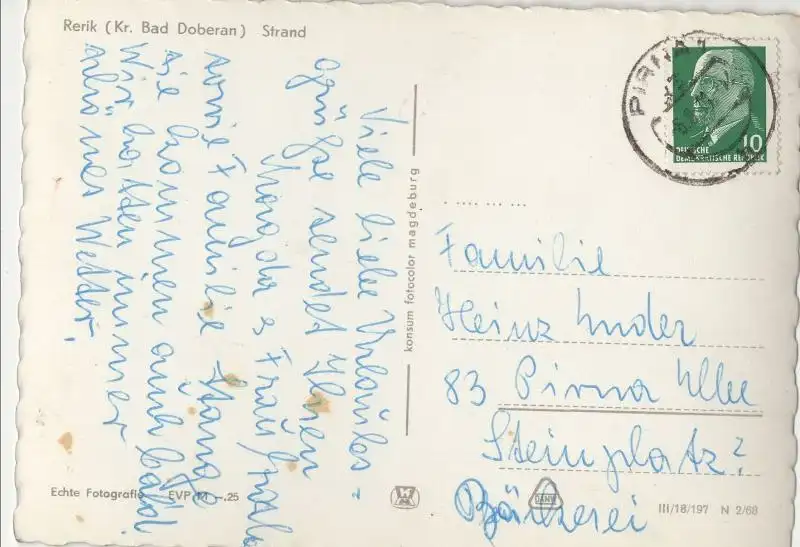 Rerik (Kr. Bad Doberan) Strand
Viele liebe Urlaubs-
grüße sendet Ihnen
Magda &
sowie Familie Stange
sie kommen auch bald.
Wir hatten immer
schönes Wetter.
Echte Fotografie EVP M -.25
konsum fotocolor magdeburg
PIRNA 1
10
DEUTSCHE
DEMOKRATISCHE REPUBLIK
Familie
Heinz
83 Pirna Elbe
Steinplatz 2
Bäckerei
DANW
III/18/197 N 2/68